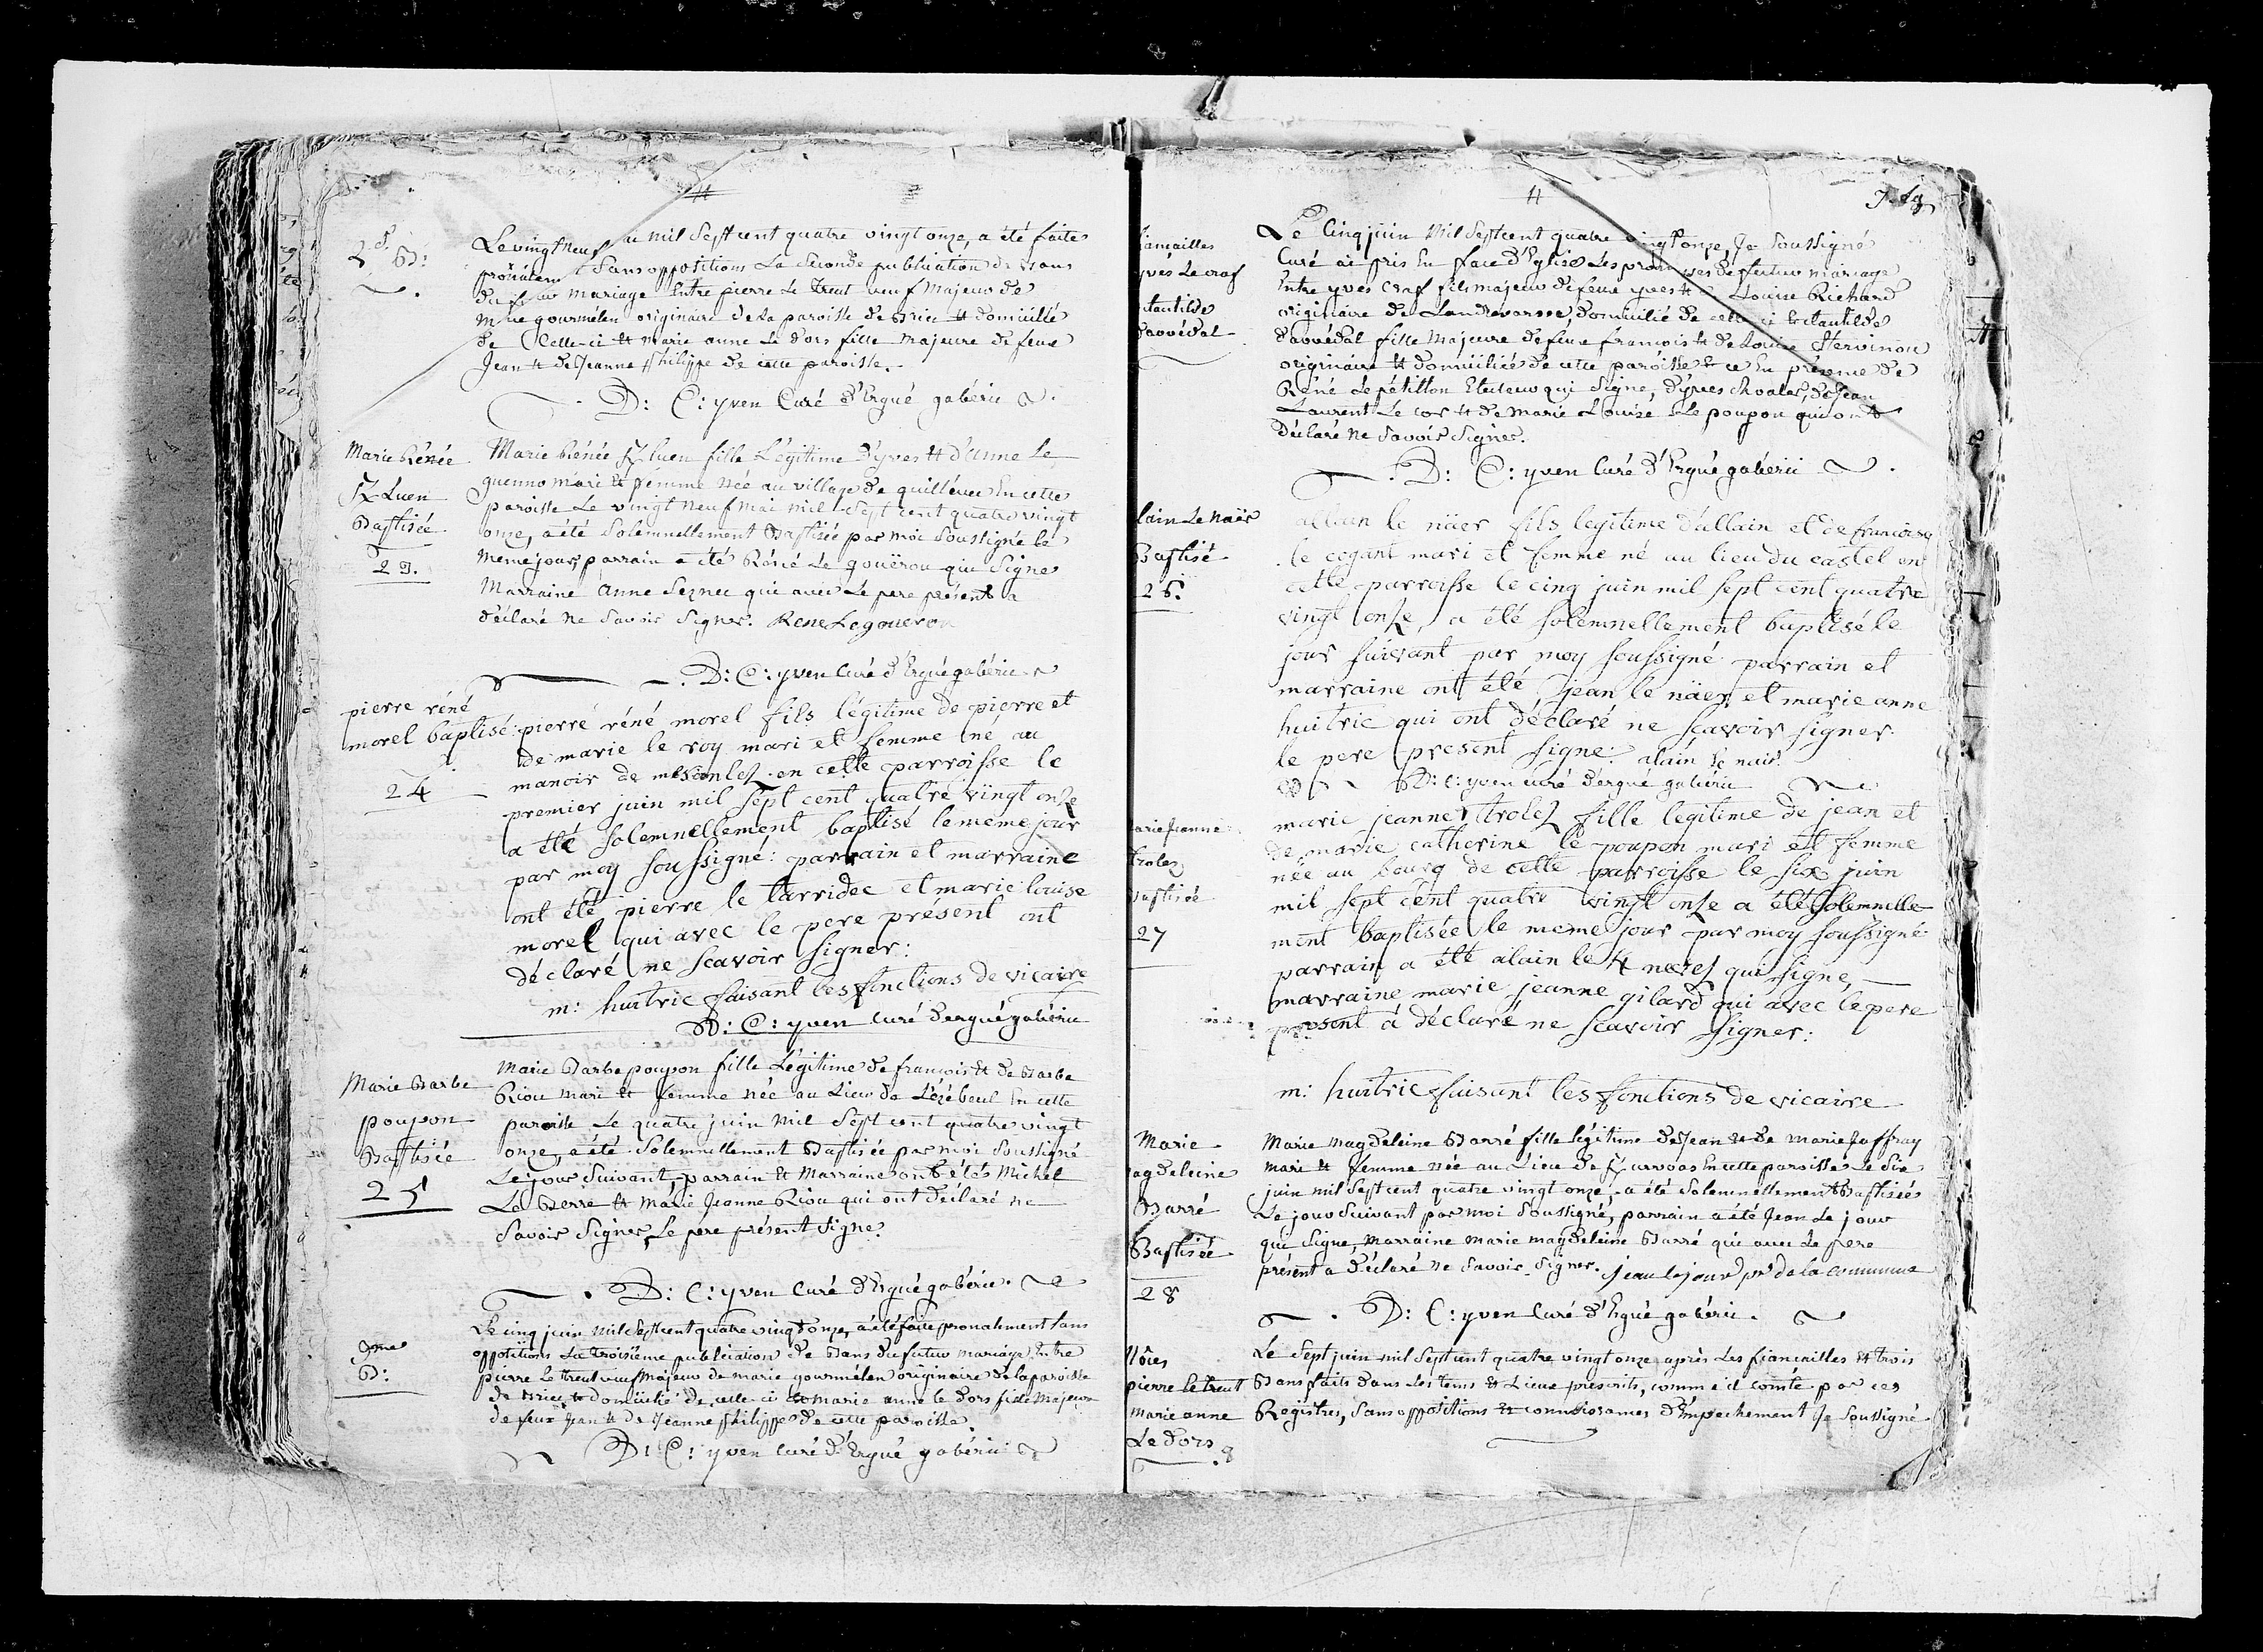 2.d B:
Le vingt neuf mai mil Sept cent quatre vingt onze, a été faite
prônalem.t Sans oppositions La Seconde publication de Bans
du futur Mariage Entre pierre Le treut veuf Majeur de
Marie gourmélen originaire de la paroisse de Briec & domicilié
de Celle-ci & Marie anne Le Dors fille Majeure de feue
Jean & de Jeanne Philippe de cette paroisse.
D: C: yven Curé d'Ergué gabéric
Marie Rénée
Luen
Baptisée
23.
Marie Rénée luen fille Légitime d'yves & d'anne Le
guenno mari & femme Née au village de quillévec En cette
paroisse Le vingt neuf Mai mil Sept cent quatre vingt
onze, a été Solemnellement Baptisée par moi Soussigné le
meme jour, parrain a été Réné Le goüérou qui Signe
Marraine anne Seznec qui avec Le pere présent a
déclaré ne Savoir Signer. Rene Legoueron
D: C: yven Curé d'Ergué gabéric
pierre réné
morel baptisé:
24
pierre réné morel fils légitime de pierre et
de marie le roy mari et femme né au
manoir de en cette parroisse le
premier juin mil sept cent quatre vingt onze
a été solemnellement baptisé le même jour
par moy soussigné: parrain et marraine
ont été pierre le tarridec et marie louise
morel qui avec le pere présent ont
déclaré ne scavoir signer:
m: huitric faisant les fonctions de vicaire
D: C: yven Curé d'ergué gabéric
Marie Barbe
poupon
Baptisée
25
Marie Barbe poupon fille Légitime de francois & de Barbe
Riou mari & femme née au Lieu de Lézébeul En cette
paroisse Le quatre juin mil Sept cent quatre vingt
onze, a été Solemnellement Baptisée par moi Soussigné
Le jour Suivant, parrain & Marraine ont étés Michel
Le Berre & Marie Jeanne Riou qui ont déclaré ne
Savoir Signer, Le pere présent Signe.
D: C: yven Curé d'Ergué gabéric.
3me
B:
Le cinq juin mil Sept cent quatre vingt onze, a été faite pronalement Sans
oppositions La troisième publication de Bans du futur mariage Entre
pierre Le treut veuf Majeur de marie gourmélen originaire de la paroisse
de Briec & domicilié de celle-ci & marie anne le dors fille Majeure
de feux Jean & de Jeanne Philippe de cette paroisse.
D: C: yven Curé d'Ergué gabéric
fiancailles
yves Le craf
clautilde
daovédal
Le Cinq juin Mil Sept cent quatre vingt onze, Je Soussigné
Curé ai pris En face d'Eglise Les promesses de futur mariage
Entre yves Craf fils majeur de feue yves & de Louise Richard
originaire de Landrevarzec, domicilié de celle ci & clautilde
daovédal fille majeure de feue francois & de Louise Hervinou
originaire & domiciliée de cette paroisse & ce En présence de
Réné Le pétillon Electeur qui Signe, d'yves choalec, de Jean
Laurent Le cor & de Marie Louise Le poupon qui ont
déclaré Ne Savoir Signer.
D: C: yven Curé d'Ergué gabéric
lain Le Naër
Baptisé
26.
allain le näer fils legitime d'allain et de francoise
le cogant mari et femme né au lieu du castel en
cette parroisse le cinq juin mil sept cent quatre
vingt onze, a été solemnellement baptisé le
jour suivant par moy soussigné parrain et
marraine ont été jean le näer et marie anne
huitric qui ont déclaré ne scavoir signer
le pere présent signe: alain le nair
D: C: yven curé d'ergué gabéric
arie jeanne
trolez
Baptisée
27
marie jeanne trolez fille legitime de jean et
de marie catherine le poupon mari et femme
née au bourg de cette parroisse le six juin
mil sept cent quatre vingt onze a été solemnelle-
ment baptisée le meme jour par moy soussigné
parrain a été alain le qui signe,
marraine marie jeanne gilard qui avec le pere
présent a déclaré ne scavoir signer:
m: huitric faisant les fonctions de vicaire
Marie
agdeleine
Barré
Baptisée
28
Marie magdeleine Barré fille légitime de Jean & de Marie Jaffray
Mari & femme née au Lieu de En cette paroisse Le Six
juin mil Sept cent quatre vingt onze, a été Solemnellement Baptisées
Le jour Suivant par moi Soussigné, parrain a été Jean Le jour
qui Signe, marraine Marie magdeleine Barré qui avec Le pere
présent a déclaré Ne Savoir Signer. jean lejour pr de la commune
D: C: yven Curé d'Ergué gabéric.
Nôces
pierre le treut
Marie anne
Le dors
Le Sept juin mil Sept cent quatre vingt onze après Les fiancailles & trois
Bans faits dans les tems & Lieux prescrits, comme il conste par ces
Registres, Sans oppositions & connoissances d'Empechement Je Soussigné